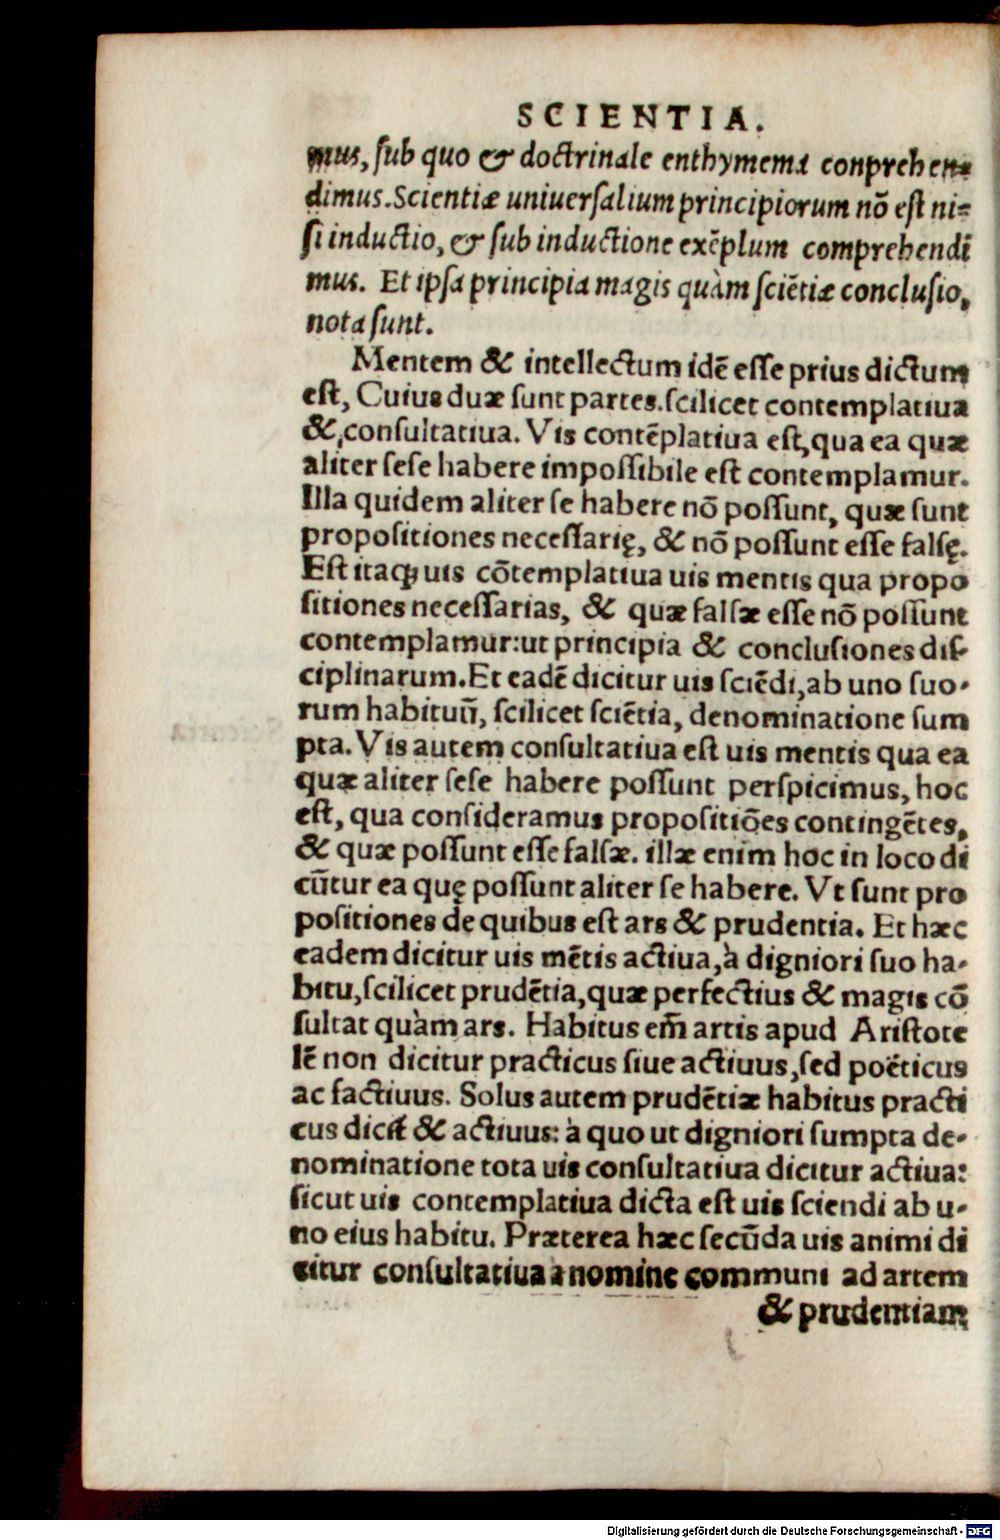 SCIENTIA.
mus, sub quo & doctrinale enthymema conprehen-
dimus. Scientiæ uniuersalium principiorum nõ est ni-
si inductio, & sub inductione exẽplum comprehendi
mus. Et ipsa principia magis quàm sciẽtiæ conclusio,
nota sunt.
Mentem & intellectum idẽ esse prius dictum
est, Cuius duæ sunt partes. scilicet contemplatiua
&, consultatiua. Vis contẽplatiua est, qua ea quæ
aliter sese habere impossibile est contemplamur.
Illa quidem aliter se habere nõ possunt, quæ sunt
propositiones necessarię, & nõ possunt esse falsę.
Est itaq; uis cõtemplatiua uis mentis qua propo
sitiones necessarias, & quæ falsæ esse nõ possunt
contemplamur: ut principia & conclusiones dis-
ciplinarum. Et eadẽ dicitur uis sciẽdi, ab uno suo-
rum habituũ, scilicet sciẽtia, denominatione sum
pta. Vis autem consultatiua est uis mentis qua ea
quæ aliter sese habere possunt perspicimus, hoc
est, qua consideramus propositiões contingẽtes,
& quæ possunt esse falsæ. illæ enim hoc in loco di
cũtur ea quę possunt aliter se habere. Vt sunt pro
positiones de quibus est ars & prudentia. Et hæc
eadem dicitur uis mẽtis actiua, à digniori suo ha-
bitu, scilicet prudẽtia, quæ perfectius & magis cõ
sultat quàm ars. Habitus em̃ artis apud Aristote
lẽ non dicitur practicus siue actiuus, sed poëticus
ac factiuus. Solus autem prudẽtiæ habitus practi
cus dicit̃ & actiuus: à quo ut digniori sumpta de-
nominatione tota uis consultatiua dicitur actiua:
sicut uis contemplatiua dicta est uis sciendi ab u-
no eius habitu. Præterea hæc secũda uis animi di
citur consultatiua à nomine communi ad artem
& prudentiam
Digitalisierung gefördert durch die Deutsche Forschungsgemeinschaft - DFG